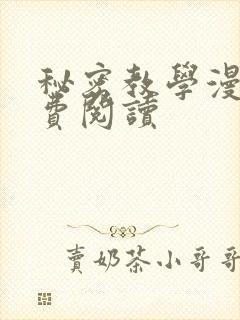 秘密教學漫
費閱讀
賣奶茶小哥哥